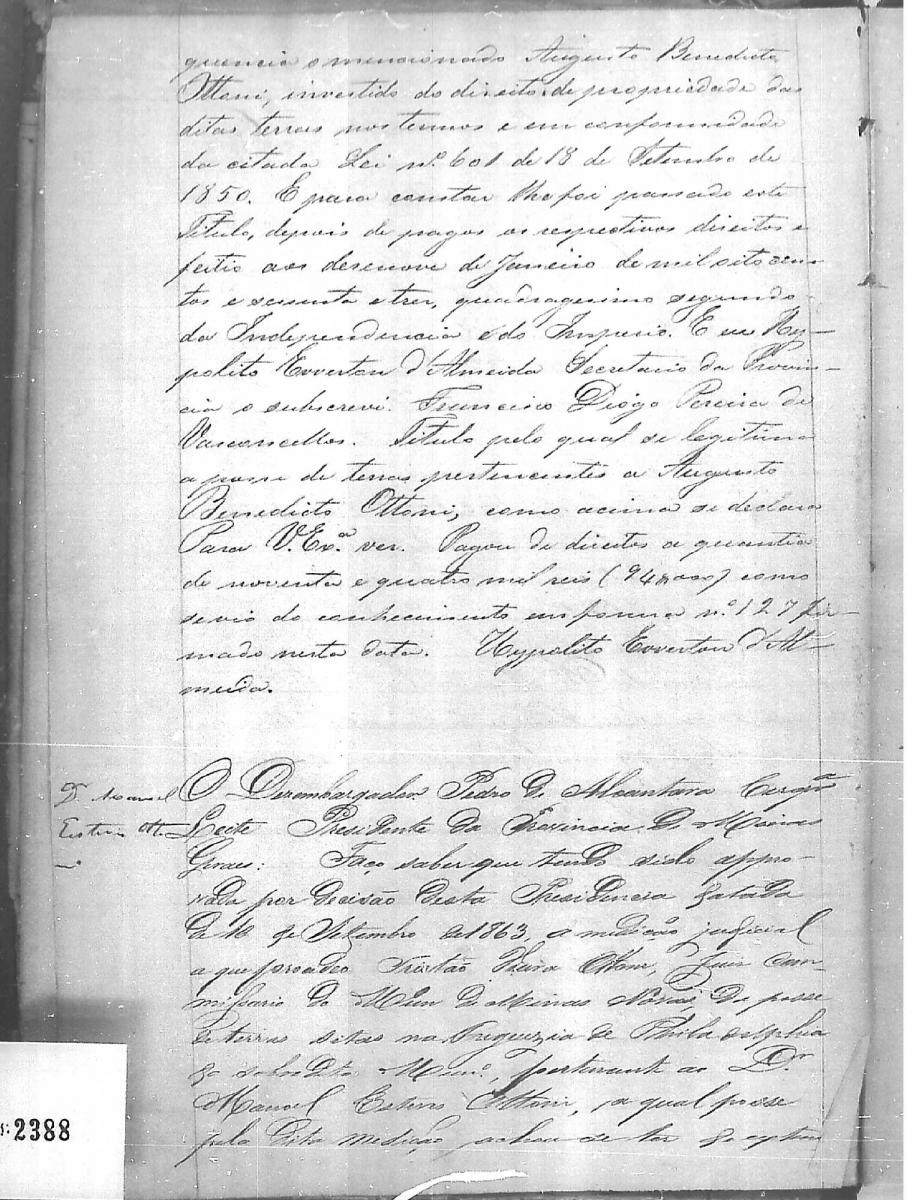 quencia o mencionado Augusto Benedicto
Ottoni, investido do direito de propriedade das
ditas terras nos termos e em conformidade
da citada Lei nº 601 de 18 de Setembro de
1850. E para constar lhe foi passado este
Titulo, depois de pagos os respectivos direitos e
feitio aos desenove de Janeiro de mil oito cen-
tos e sessenta e tres, quadragesimo segundo
da Independencia e do Imperio. E eu Hy-
polito Evverton d'Almeida Secretario da Provin-
cia o subscrevi. Francisco Diogo Pereira de
Vasconcellos. Titulo pelo qual se legitima
a posse de terras pertencentes a Augusto
Benedicto Ottoni, como acima se declara
Para V. Exª ver. Pagou de direitos a quantia
de noventa e quatro mil reis (94$000) como
se vio do conhecimento em forma nº 127 fir-
mado nesta data. Hypolito Evverton d'Al-
meida.
Dr Manoel
Esteves Ottoni
O Desembargador Pedro de Alcantara Cerqª
Leite Presidente da Provincia de Minas
Geraes: Faço saber que tendo sido appro-
vada por decisão desta Presidencia datada
de 10 de Setembro de 1863, a medição judicial
a que procedeo Tristão Vieira Ottoni, Juiz Com-
missario do Mun de Minas Novas, de posse
de terras sitas na Freguezia de Philadelphia
do sobredito Munº, pertencente ao Dr
Manoel Esteves Ottoni, a qual posse
pela dita medição achou-se ter de
:2388